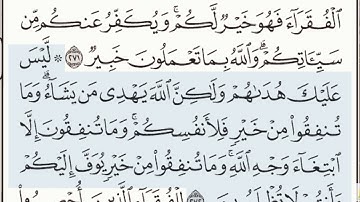 ٱلْفُقَرَآءَ فَهُوَ خَيْرٌ لَّكُمْ ۚ وَيُكَفِّرُ عَنكُم مِّن
سَيِّـَٔاتِكُمْ ۗ وَٱللَّهُ بِمَا تَعْمَلُونَ خَبِيرٌ ٢٧١ ۞ لَّيْسَ
عَلَيْكَ هُدَىٰهُمْ وَلَـٰكِنَّ ٱللَّهَ يَهْدِى مَن يَشَآءُ ۗ وَمَا
تُنفِقُوا۟ مِنْ خَيْرٍ فَلِأَنفُسِكُمْ ۚ وَمَا تُنفِقُونَ إِلَّا
ٱبْتِغَآءَ وَجْهِ ٱللَّهِ ۚ وَمَا تُنفِقُوا۟ مِنْ خَيْرٍ يُوَفَّ إِلَيْكُمْ
وَأَنتُمْ لَا تُظْلَمُونَ ٢٧٢ لِلْفُقَرَآءِ ٱلَّذِينَ أُحْصِرُوا۟